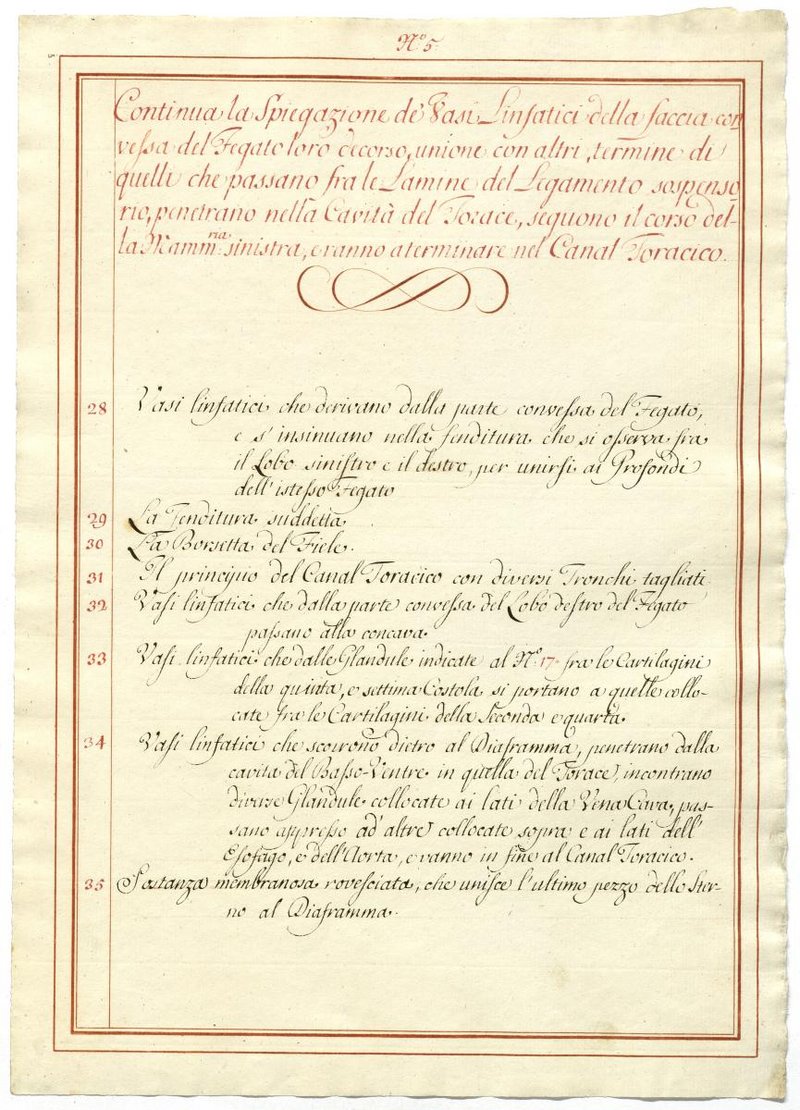 N.º 5.
Continua la Spiegazione de' Vasi Linfatici della faccia con
vessa del Fegato loro decorso, unione con altri, termine di
quelli che passano fra le Lamine del Legamento sospenso-
rio, penetrano nella Cavità del Torace, seguono il corso del-
la Mamm.ria sinistra, e vanno a terminare nel Canal Toracico.
28 Vasi linfatici che derivano dalla parte convessa del Fegato,
e s' insinuano nella fenditura che si osserva fra
il Lobo sinistro e il destro, per unirsi ai Profondi
dell' istesso Fegato
29 La Fenditura suddetta
30 La Borsetta del Fiele.
31 Il principio del Canal Toracico con diversi Tronchi tagliati
32 Vasi linfatici che dalla parte convessa del Lobo destro del Fegato
passano alla concava.
33 Vasi linfatici che dalle Glandule indicate al N.º 17 fra le Cartilagini
della quinta, e settima Costola si portano a quelle collo-
cate fra le Cartilagini della seconda e quarta.
34 Vasi linfatici che scorrono dietro al Diaframma, penetrano dalla
cavità del Basso-Ventre in quella del Torace, incontrano
diverse Glandule collocate ai lati della Vena Cava, pas-
sano appresso ad' altre collocate sopra e ai lati dell'
Esofago, e dell' Aorta, e vanno in fine al Canal Toracico.
35 Sostanza membranosa rovesciata, che unisce l' ultimo pezzo dello Ster-
no al Diaframma.